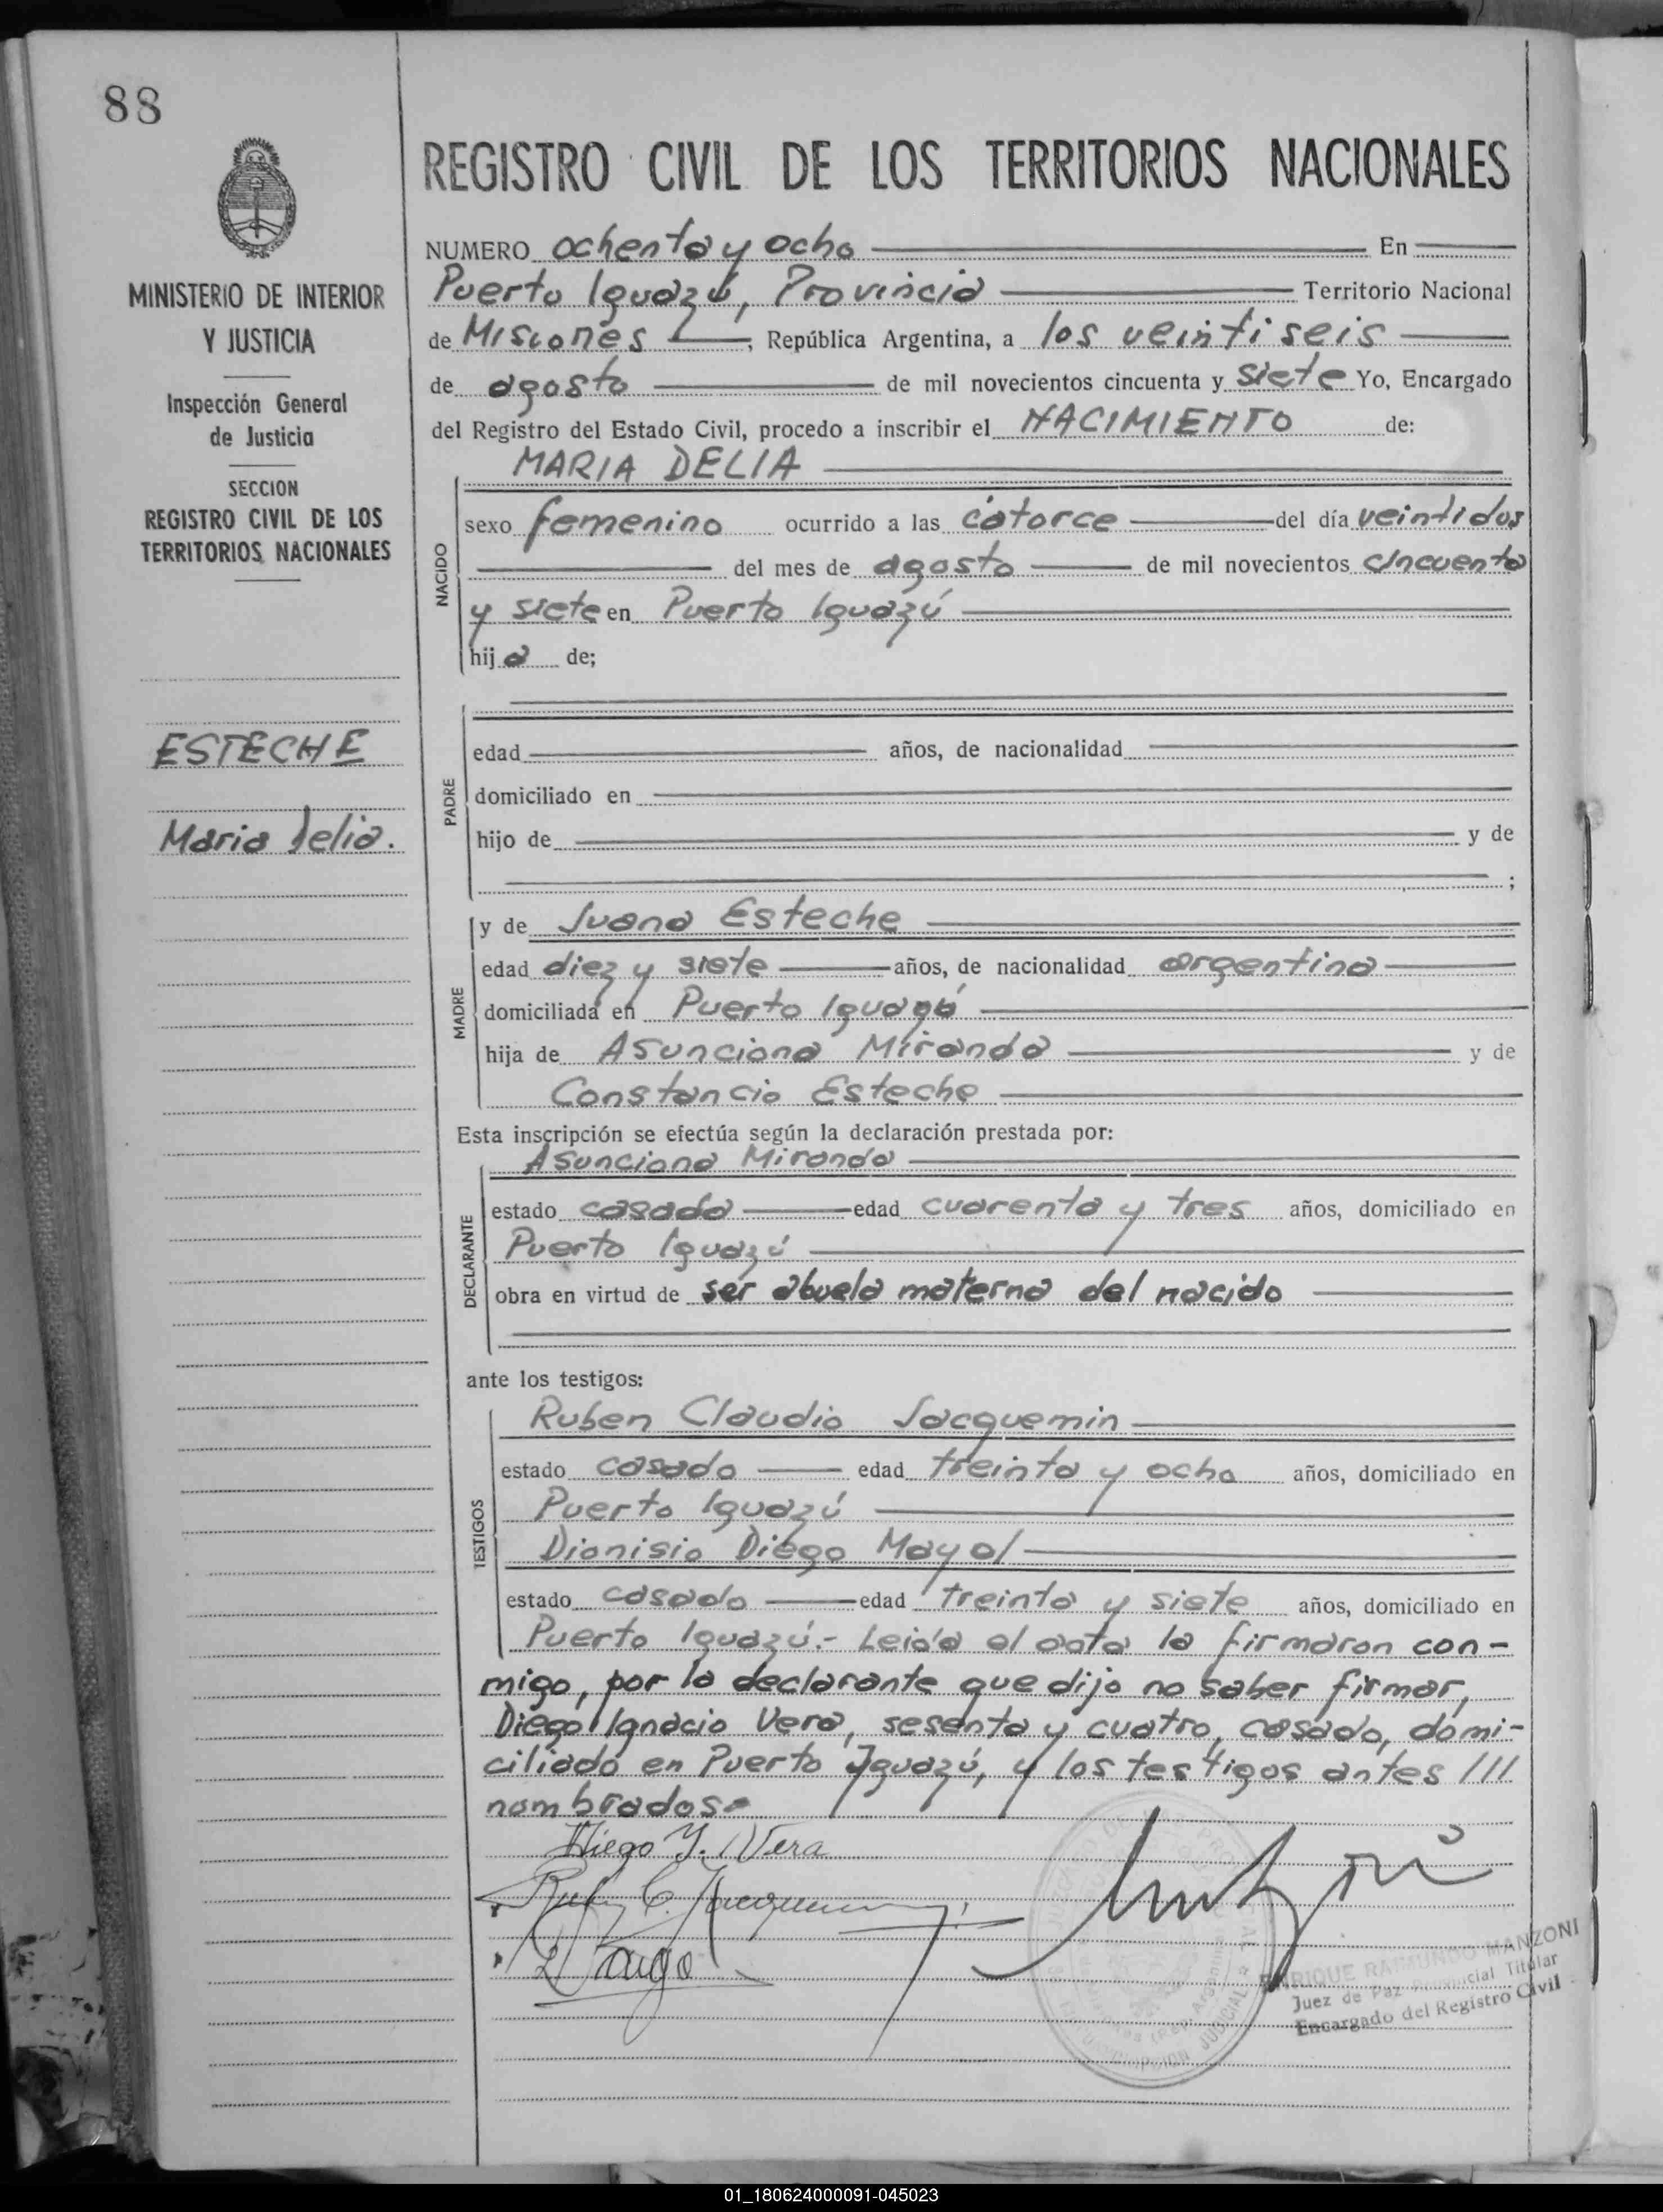 88
REGISTRO CIVIL DE LOS TERRITORIOS NACIONALES
MINISTERIO DE INTERIOR
Y JUSTICIA
Inspección General
de Justicia
SECCION
REGISTRO CIVIL DE LOS
TERRITORIOS NACIONALES
ESTECHE
Maria Delia.
NUMERO ochenta y ocho En
Puerto Iguazú, Provincia Territorio Nacional
de Misiones, República Argentina, a los veintiseis
de agosto de mil novecientos cincuenta y siete Yo, Encargado
del Registro del Estado Civil, procedo a inscribir el NACIMIENTO de:
MARIA DELIA
NACIDO
sexo femenino ocurrido a las catorce del día veintidos
del mes de agosto de mil novecientos cincuenta
y siete en Puerto Iguazú
hija de;
PADRE
edad años, de nacionalidad
domiciliado en
hijo de y de
;
MADRE
y de Juana Esteche
edad diez y siete años, de nacionalidad argentina
domiciliada en Puerto Iguazú
hija de Asunciona Miranda y de
Constancio Esteche
Esta inscripción se efectúa según la declaración prestada por:
DECLARANTE
Asunciona Miranda
estado casada edad cuarenta y tres años, domiciliado en
Puerto Iguazú
obra en virtud de ser abuela materna del nacido
ante los testigos:
TESTIGOS
Ruben Claudio Jacquemin
estado casado edad treinta y ocho años, domiciliado en
Puerto Iguazú
Dionisio Diego Mayol
estado casado edad treinta y siete años, domiciliado en
Puerto Iguazú.- Leida el acta la firmaron con-
migo, por la declarante que dijo no saber firmar,
Diego Ignacio Vera, sesenta y cuatro, casado, domi-
ciliado en Puerto Iguazú, y los testigos antes ///
nombrados=
Diego Y. Vera
ENRIQUE RAIMUNDO MANZONI
Juez de Paz Provincial Titular
Encargado del Registro Civil
01_180624000091-045023